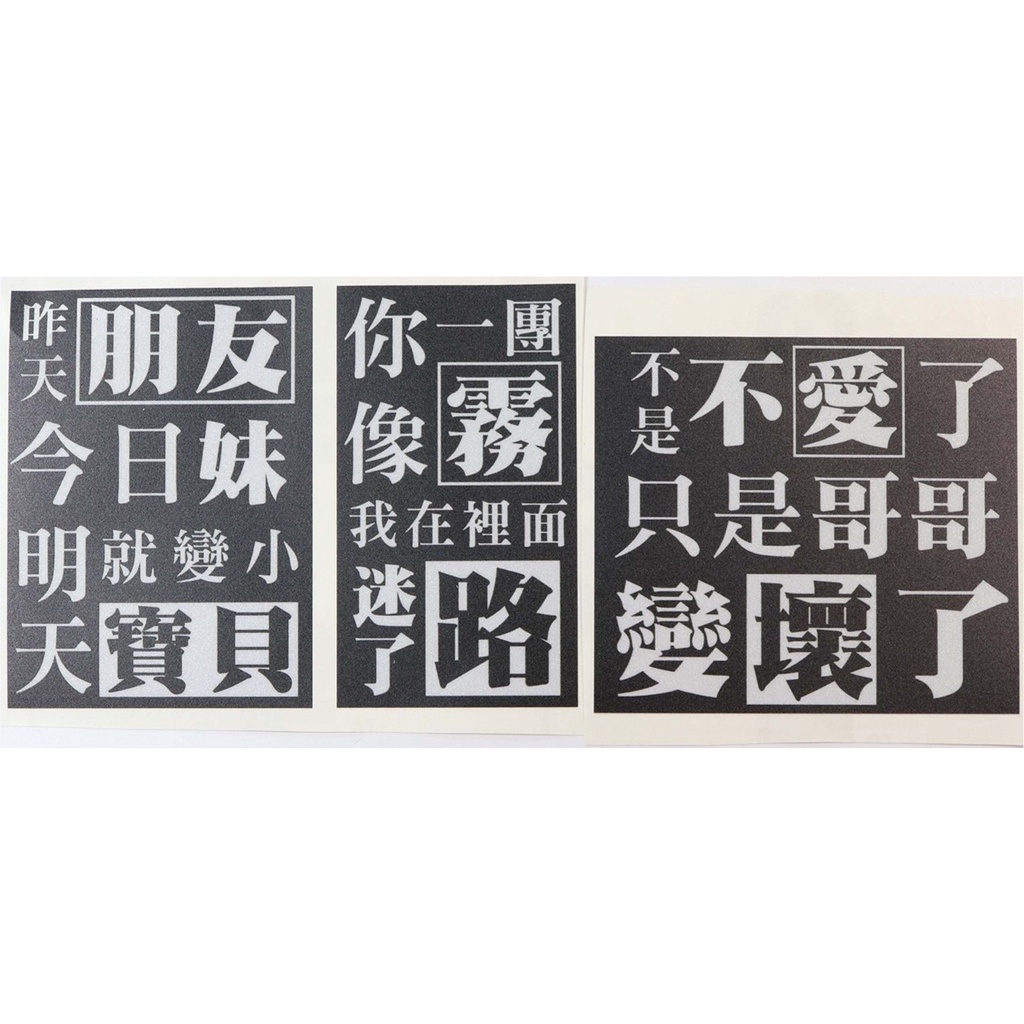 昨天朋友
今日妹
明就變小
天寶貝
你一團
像霧
我在裡面
迷路
了
不是不愛了
只是哥哥
變壞了